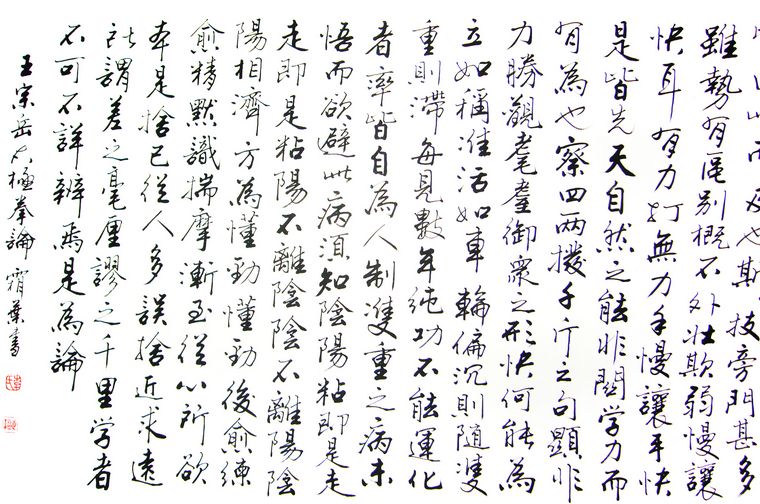 此而及也斯技旁門甚多
雖勢有區別概不外壯欺弱慢讓
快耳有力打無力手慢讓手快
是皆先天自然之能非關学力而
有為也察四兩撥千斤之句顯非
力勝觀耄耋御眾之形快何能為
立如稱准活如車輪偏沉則隨雙
重則滯每見數年純功不能運化
者率皆自為人制雙重之病未
悟而欲避此病須知陰陽粘即是走
走即是粘陽不離陰陰不離陽陰
陽相濟方為懂勁懂勁後愈練
愈精默識揣摩漸至從心所欲
本是捨己從人多誤捨近求遠
所謂差之毫厘謬之千里学者
不可不詳辨焉是為論
王宗岳太極拳論 霜葉書